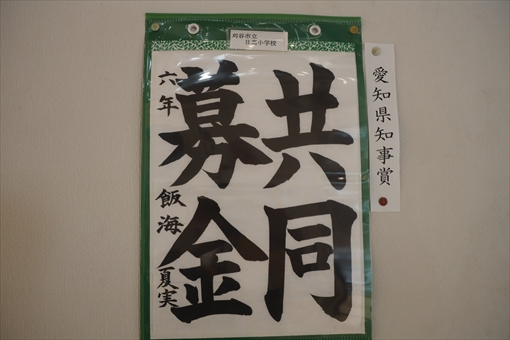 刈谷市立
日高小学校
共同
募金
六年 飯海 夏実
愛知県知事賞